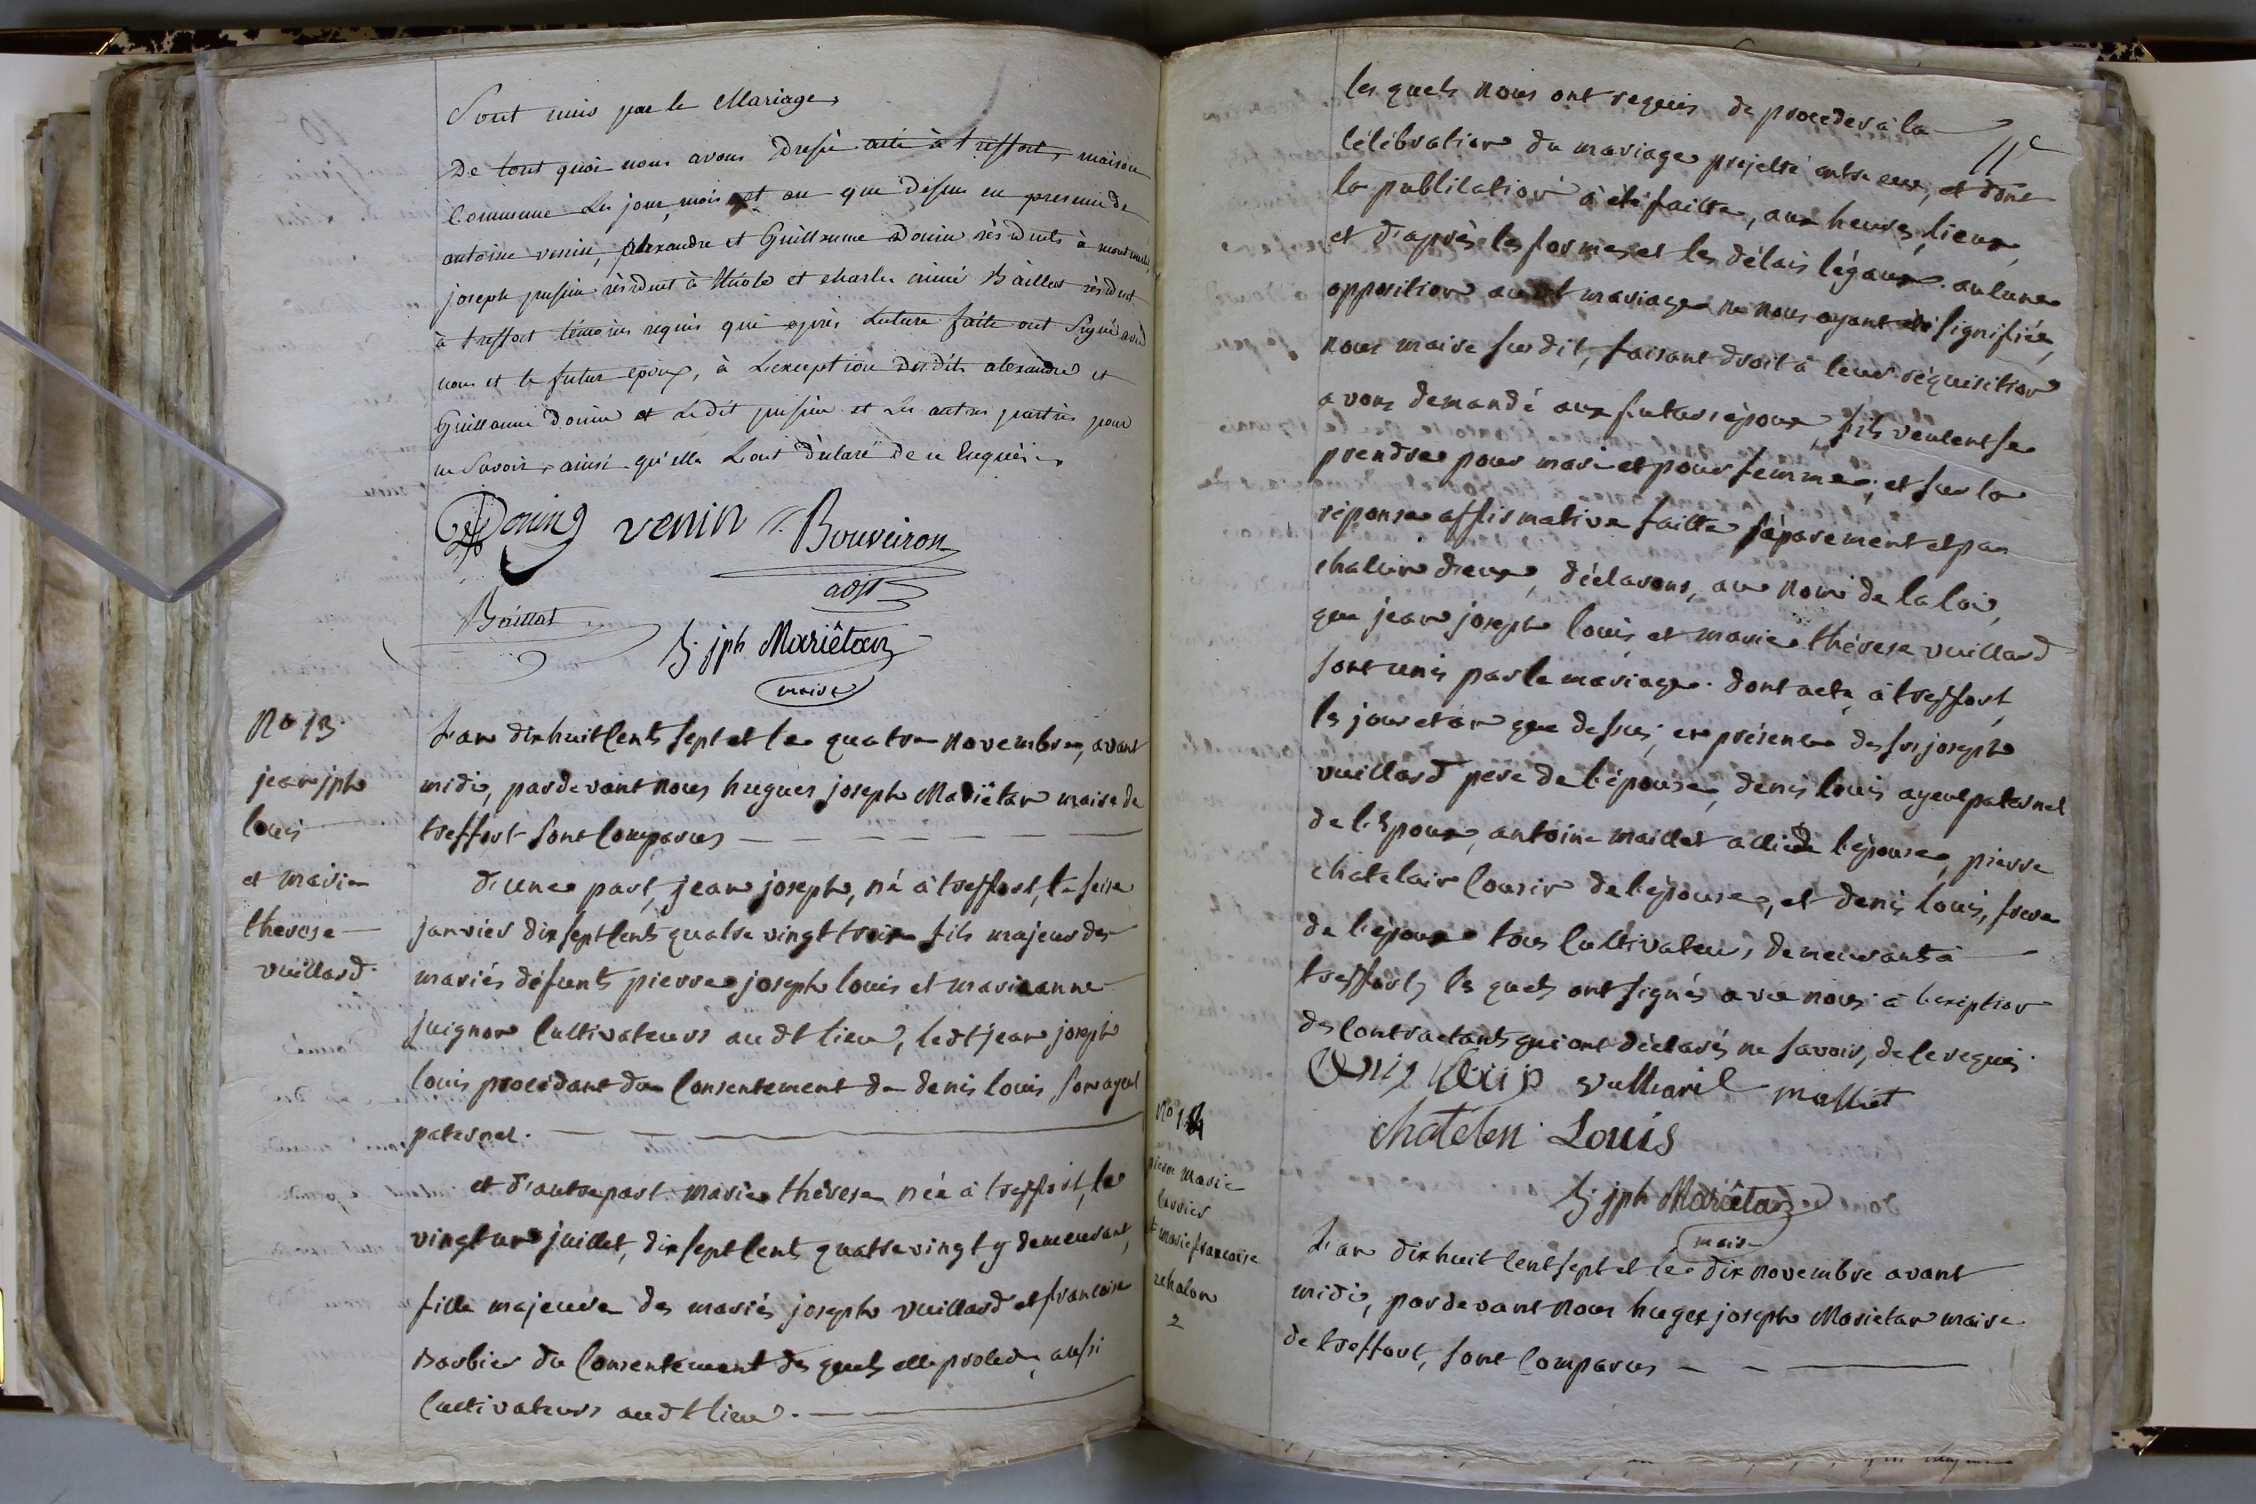 Sont unis par le Mariage,
De tout quoi nous avons Dressé acte à treffort, maison
Commune Les jour, mois et an que dessus en presence de
antoine venin, alexandre et Guillaume Donin résidents à
joseph résident à et charles aimé Baillat résident
à treffort témoins requis qui après Lecture faite ont Signé avec
nous et le futur époux, à L'exception desdits alexandre et
Guillaume Donin et Ledit et Les autres parties pour
ne Savoir, ainsi qu'elles L'ont déclaré de ce Enquis.
Donin venin Bouveiron
adjt
Baillat
h. jph Mariêtan
maire
No 13.
jean jph
louis
et marie
therese
vuillard.
L'an dix huit Cents Sept et le quatre novembre, avant
midi, pardevant nous hugues joseph Mariétan maire de
treffort Sont Comparus
d'une part, jean joseph, né à treffort, le seise
janvier dix Sept Cents quatre vingt trois fils majeur des
mariés défunts pierre joseph louis et marie anne
juignon Cultivateurs audt lieu, ledt jean joseph
louis procédant du Consentement de denis louis, son ayeul
paternel.
et d'autre part marie thérese née à treffort, le
vingt un juillet, dix Sept Cents quatre vingt y demeurant,
fille majeure des mariés joseph vuillard et francoise
Barbier du Consentement des quels elle procede, aussi
Cultivateurs audt lieu.
11e
les quels nous ont requis de proceder à la
Célébration du mariage projetté entre eux, et dont
la publication à été faitte, aux heures, lieux,
et d'après les formes et les délais légaux. aucune
opposition audt mariage ne nous ayant été signifiée,
nous maire susdit, faisant droit à leur réquisition
avons demandé aux futurs époux, s'ils veulent se
prendre pour mari et pour femme; et sur la
réponse affirmative faitte séparement et par
chacun d'eux, déclarons, au nom de la loi,
que jean joseph louis et marie thérese vuillard
sont unis par le mariage. dont acte, à treffort,
les jour et an que dessus; en présence des srs joseph
vuillard pere de l'épouse, denis louis ayeul paternel
de l'époux, antoine maillet allié de l'épouse, pierre
chatelain Cousin de l'épouse, et denis louis, frere
de l'époux tous Cultivateurs, demeurants à
treffort, les quels ont signés avec nous à l'exception
des Contractants qui ont déclarés ne savoir, de ce requis.
Denis Louis Vulliard malliet
chatelen Louis
h. jph Mariêtan
maire
No 14
pierre marie
et marie francoise
2
L'an dix huit Cent Sept et le dix novembre avant
midi, pardevant nous hugues joseph Mariétan maire
de treffort, sont Comparus